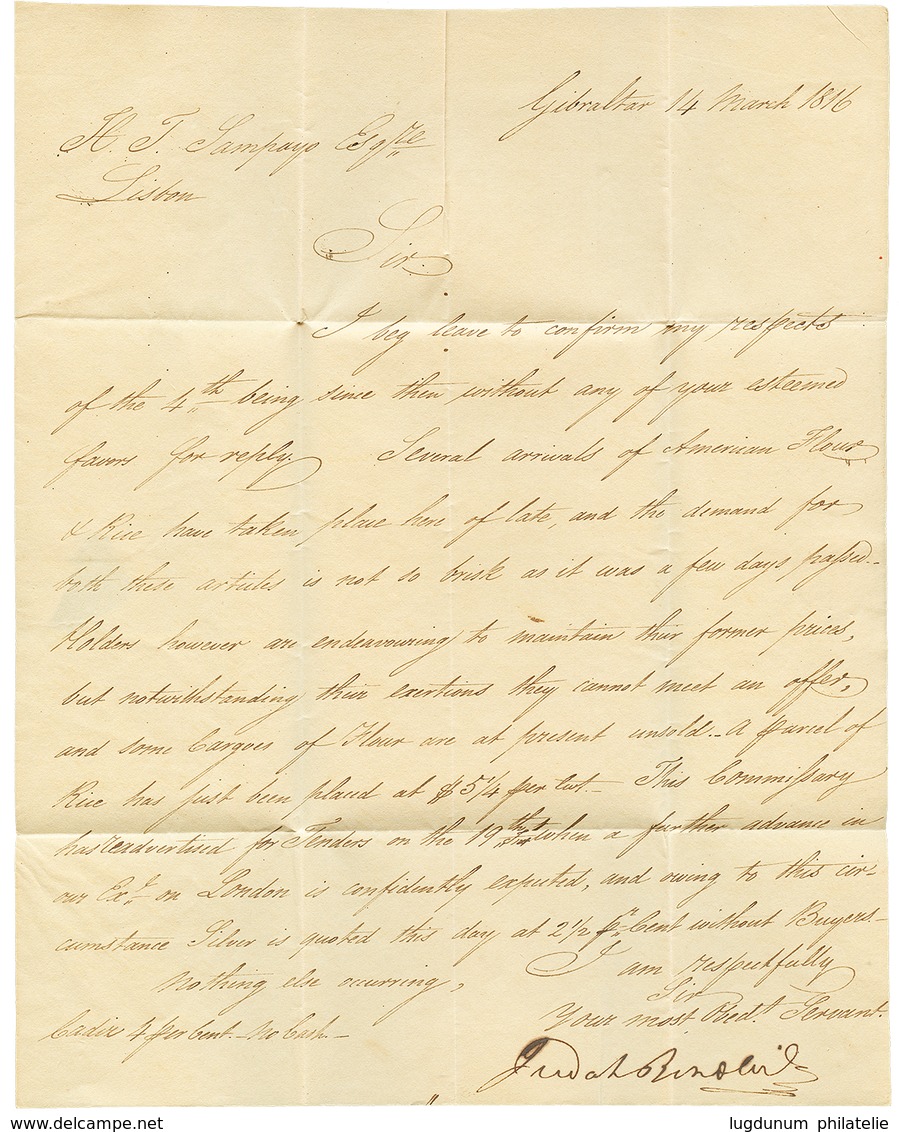 Gibraltar 14 March 1816
H. T. Sampayo Esqre
Lisbon
Sir
I beg leave to confirm my respects
of the 4th being since then without any of your esteemed
favors for reply. Several arrivals of American Flour
& Rice have taken place here of late, and the demand for
both these articles is not so brisk as it was a few days passed.-
Holders however are endeavouring to maintain their former prices,
but notwithstanding their exertions they cannot meet an offer,
and some Cargoes of Flour are at present unsold.- A parcel of
Rice has just been placed at $5 1/4 per Cwt.- This Commissary
has readvertised for Tenders on the 19th when a further advance in
our Exe on London is confidently expected, and owing to this cir-
cumstance Silver is quoted this day at 2 1/2 pr Cent without Buyers.-
Nothing else occurring, I am respectfully
Sir
Your most Obedt Servant.
Cadiz 4 per Cent.- No Cash.-
Judah Benoliel
www.delcampe.net
lugdunum philatelie